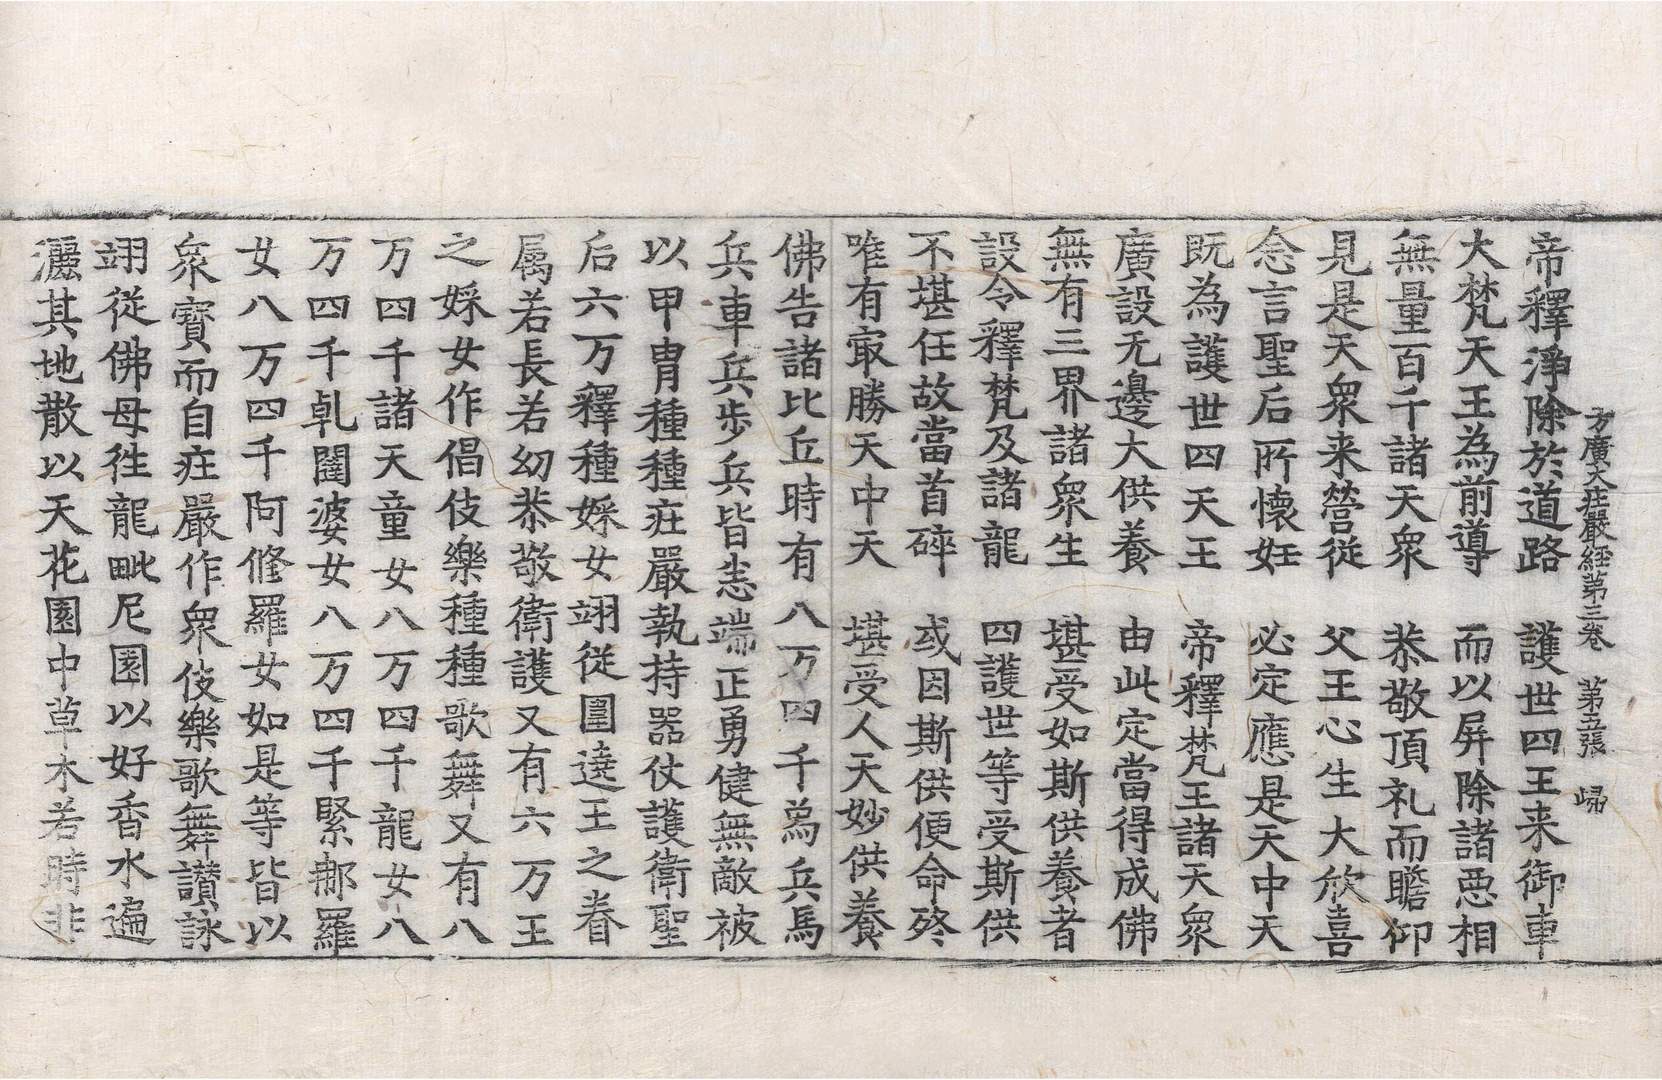 方廣大莊嚴經第三卷 第五張 㱕
帝釋淨除於道路 護世四王来御車
大梵天王為前導 而以屏除諸惡相
無量百千諸天衆 恭敬頂礼而瞻仰
見是天衆来營從 父王心生大欣喜
念言聖后所懷妊 必定應是天中天
既為護世四天王 帝釋梵王諸天衆
廣設无邊大供養 由此定當得成佛
無有三界諸衆生 堪受如斯供養者
設令釋梵及諸龍 四護世等受斯供
不堪任故當首碎 或因斯供便命終
唯有㝡勝天中天 堪受人天妙供養
佛告諸比丘時有八万四千爲兵馬
兵車兵步兵皆悉端正勇健無敵被
以甲冑種種莊嚴執持器仗護衛聖
后六万釋種婇女翊從圍遶王之眷
属若長若幼恭敬衛護又有六万王
之婇女作倡伎樂種種歌舞又有八
万四千諸天童女八万四千龍女八
万四千乹闥婆女八万四千緊那羅
女八万四千阿修羅女如是等皆以
衆寶而自莊嚴作衆伎樂歌舞讃詠
翊從佛母徃龍毗尼園以好香水遍
灑其地散以天花園中草木若時非